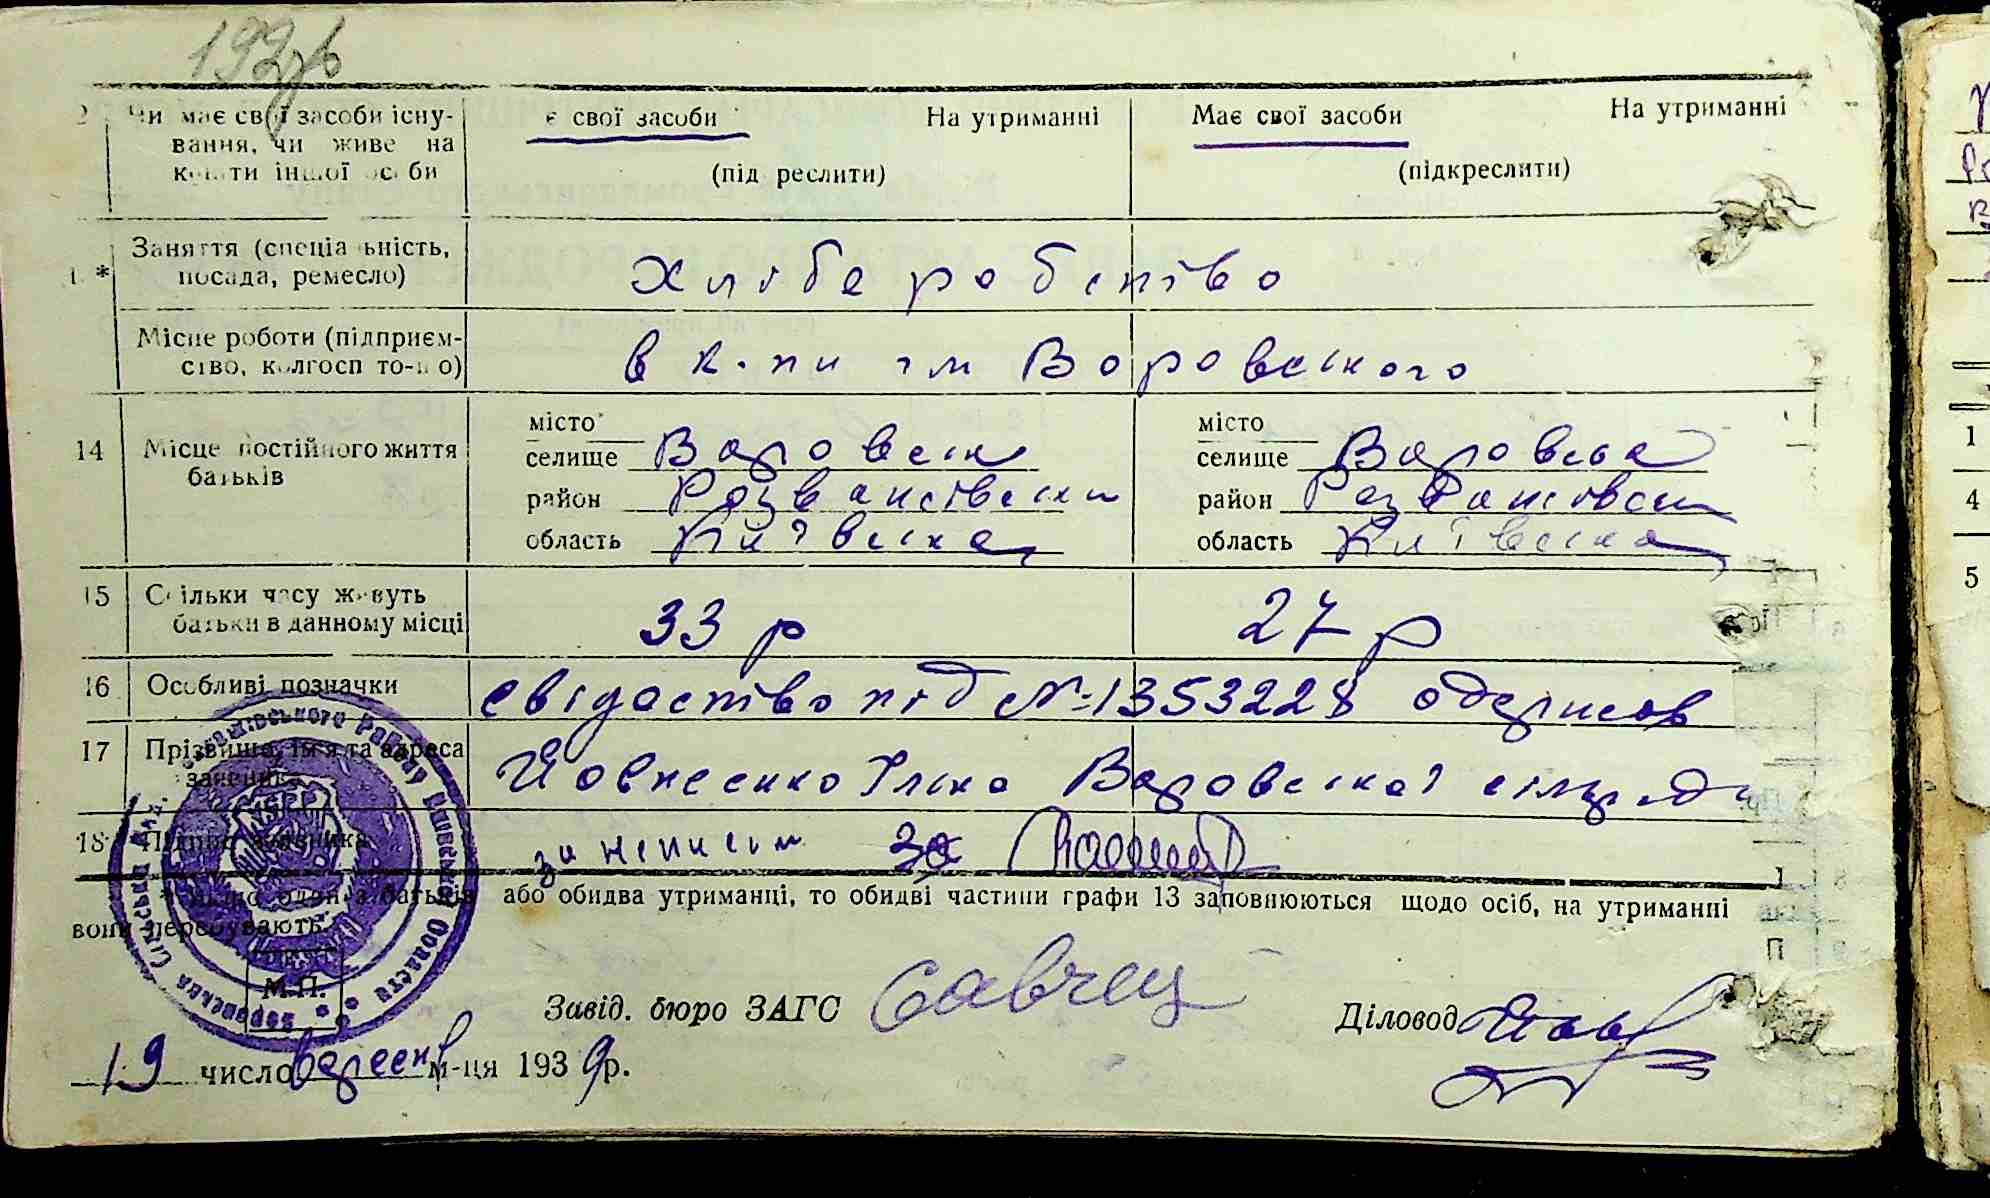 192зв
Чи має свої засоби існу-
вання, чи живе на
кошти іншої особи
є свої засоби На утриманні
(під реслити)
Має свої засоби На утриманні
(підкреслити)
Заняття (спеціа ьність,
посада, ремесло)
Хліборобство
Місце роботи (підприєм-
ство, колгосп то-що)
в к-пи ім Воровського
14 Місце постійного життя
батьків
місто
селище Воровськ
район Розважівськи
область Київська
місто
селище Воровськ
район Розважівськи
область Київська
15 Скільки часу живуть
батьки в данному місці
33 р
27 р
16 Особливі позначки
свідоство під № 1353228 одержав
17 Прізвище, ім'я та адреса
заявника
Ілько Воровської сільради
18 Підпис заявника
або обидва утриманці, то обидві частини графи 13 заповнюються щодо осіб, на утриманні
вони перебувають.
М.П.
Завід. бюро ЗАГС Савчец
Діловод
19 число вересня м-ця 1939р.
1
4
5